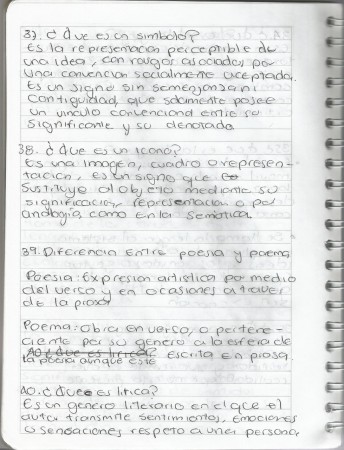 37. ¿Que es un simbolo?
Es la representacion perceptible de
una idea, con rasgos asociados por
una convencion socialmente aceptada.
Es un signo sin semenjanza ni
contiguidad, que solamente posee
un vinculo convencional entre su
significante y su denotado.
38. ¿Que es un Icono?
Es una imagen, cuadro o represen-
tacion, es un signo que
sustituye al objeto mediante su
significacion, representacion o por
analogia, como en la semiotica.
39. Diferencia Entre poesia y poema
Poesia: Expresion artistica por medio
del verso y en ocasiones a traves
de la prosa
Poema: obra en verso, o pertene-
ciente por su genero a la esfera de
la poesia aunque este escrita en prosa.
40. ¿Que es lirica?
Es un genero literario en el que el
autor transmite sentimientos, emociones
o sensaciones respecto a una persona,